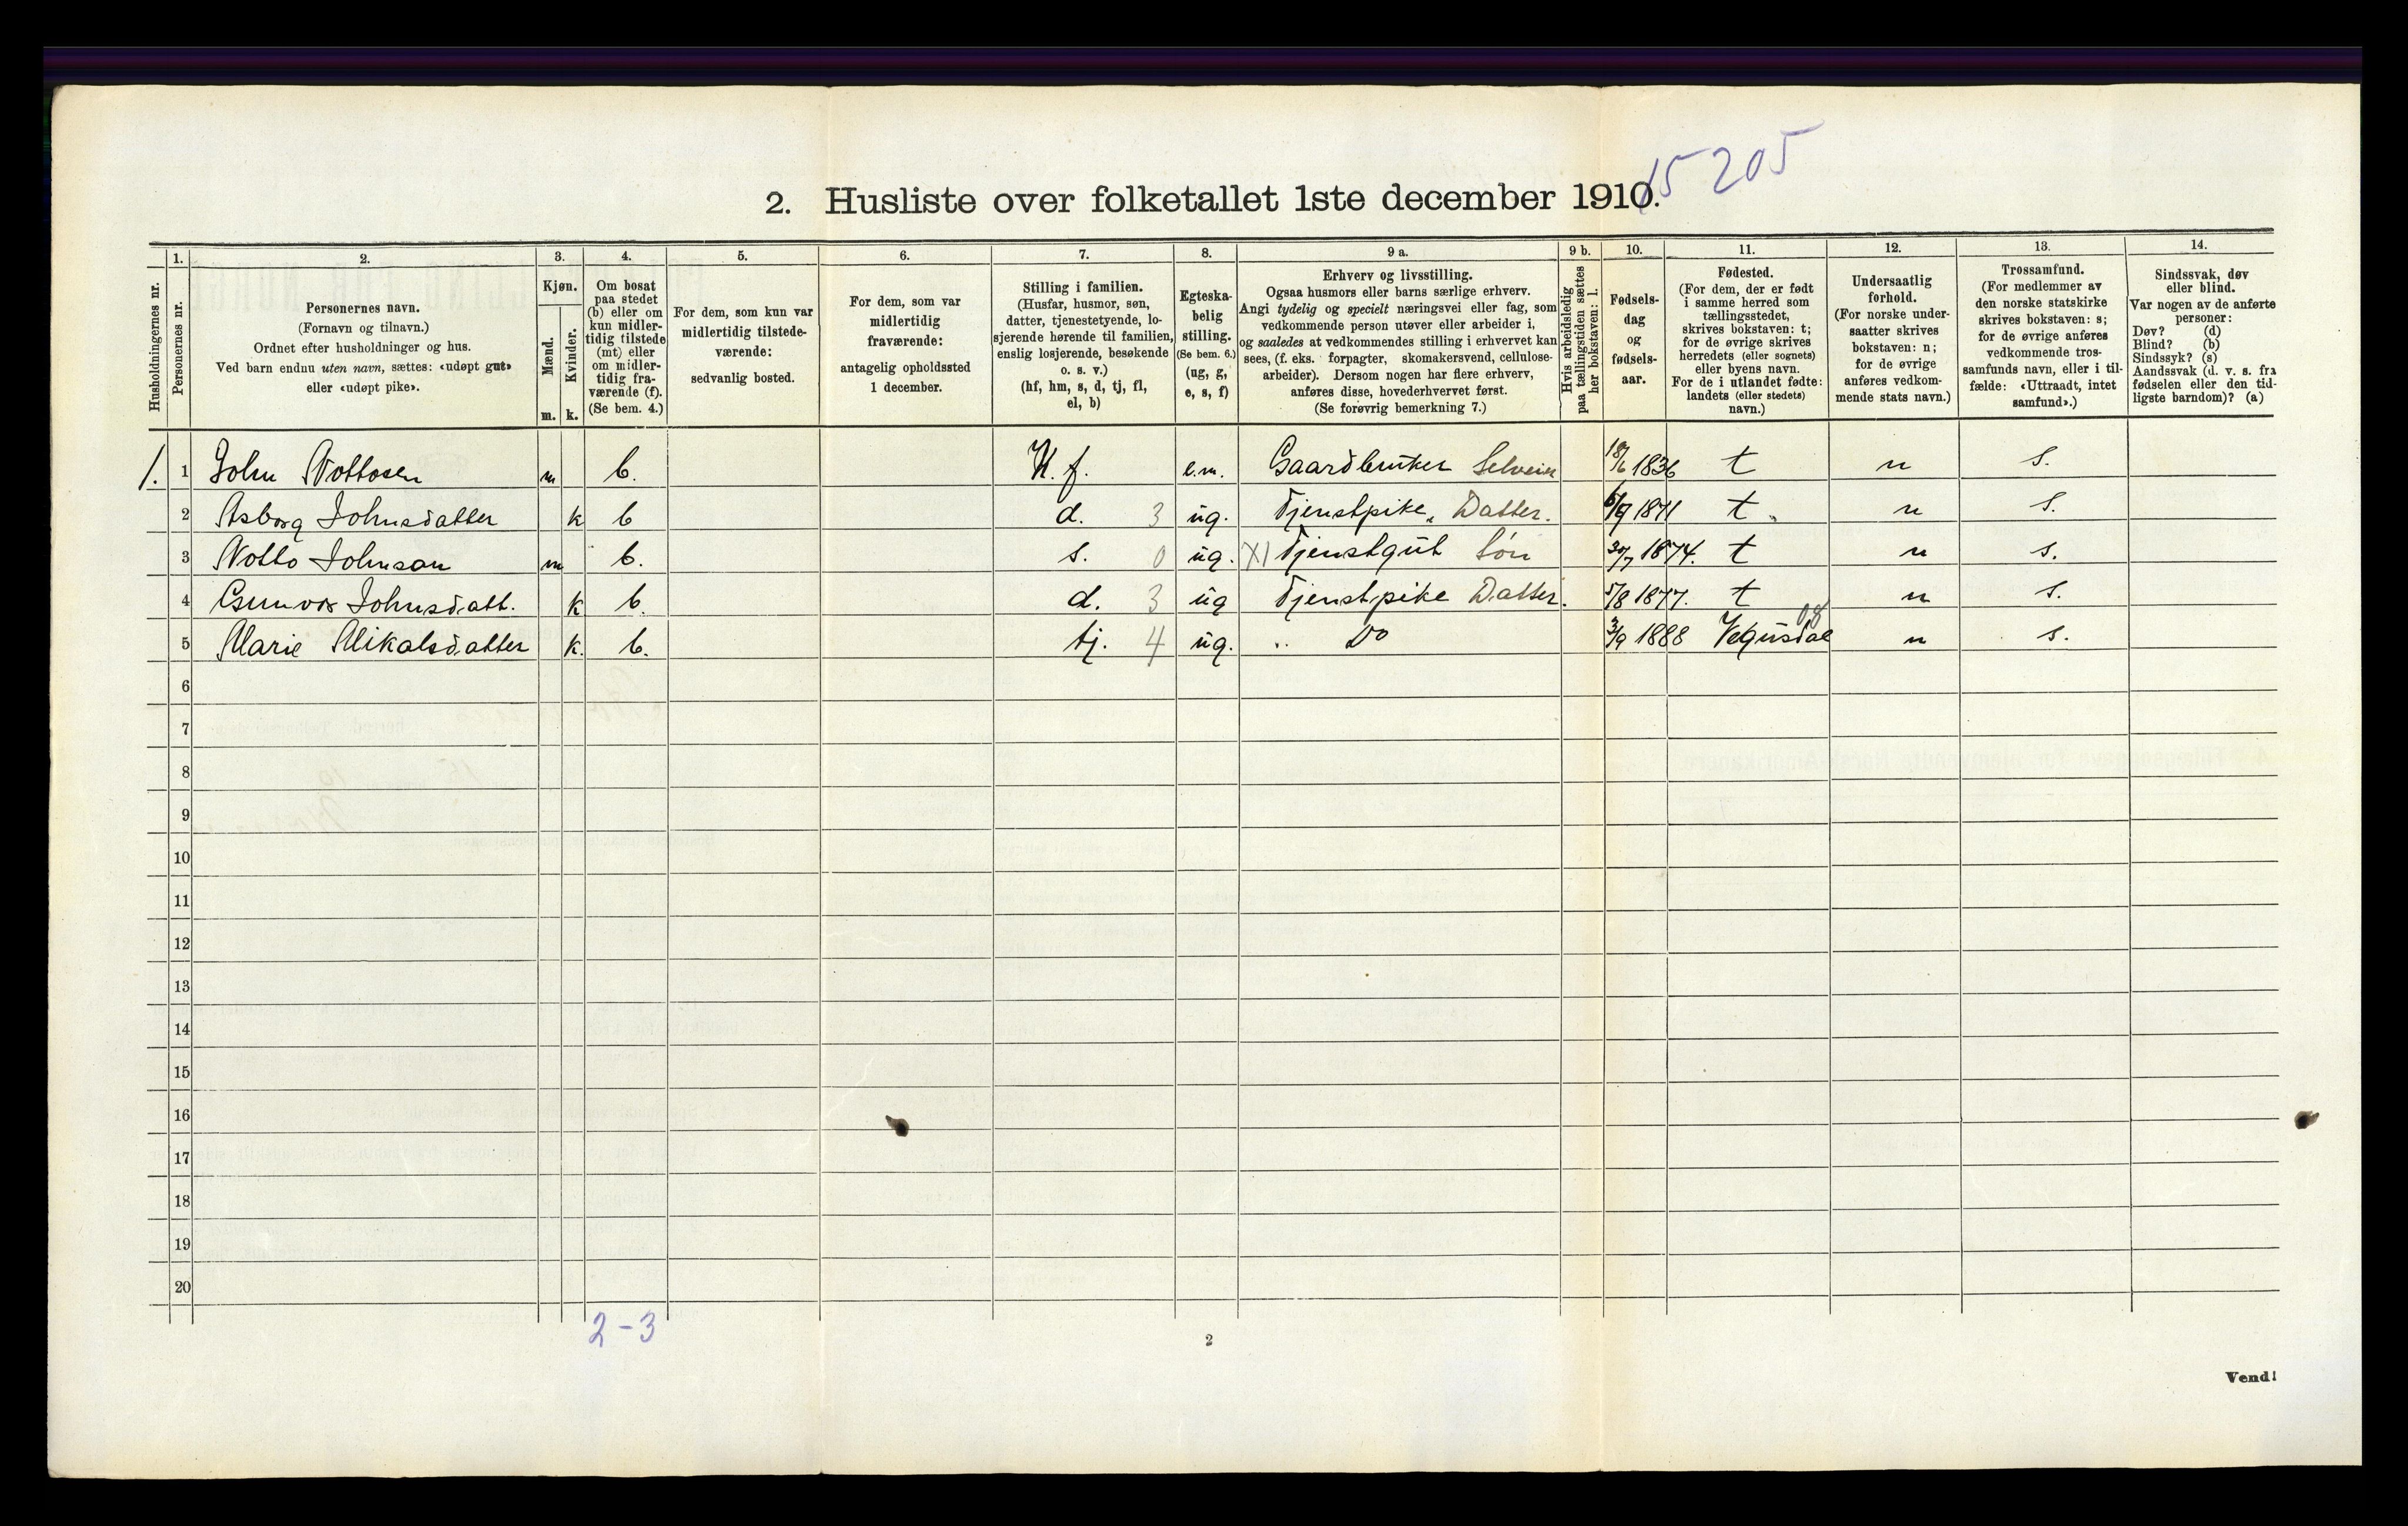 15 205
2. Husliste over folketallet 1ste december 1910.
Husholdningernes nr.
1.
Personernes nr.
2.
Personernes navn.
(Fornavn og tilnavn.)
Ordnet efter husholdninger og hus.
Ved barn endnu uten navn, sættes: «udøpt gut»
eller «udøpt pike».
3.
Kjøn.
Mænd.
m.
Kvinder.
k.
4.
Om bosat
paa stedet
(b) eller om
kun midler-
tidig tilstede
(mt) eller
om midler-
tidig fra-
værende (f).
(Se bem. 4.)
5.
For dem, som kun var
midlertidig tilstede-
værende:
sedvanlig bosted.
6.
For dem, som var
midlertidig
fraværende:
antagelig opholdssted
1 december.
7.
Stilling i familien.
(Husfar, husmor, søn,
datter, tjenestetyende, lo-
sjerende hørende til familien,
enslig losjerende, besøkende
o. s. v.)
(hf, hm, s, d, tj, fl,
el, b)
8.
Egteska-
belig
stilling.
(Se bem. 6.)
(ug, g,
e, s, f)
9 a.
Erhverv og livsstilling.
Ogsaa husmors eller barns særlige erhverv.
Angi tydelig og specielt næringsvei eller fag, som
vedkommende person utøver eller arbeider i,
og saaledes at vedkommendes stilling i erhvervet kan
sees, (f. eks. forpagter, skomakersvend, cellulose-
arbeider). Dersom nogen har flere erhverv,
anføres disse, hovederhvervet først.
(Se forøvrig bemerkning 7.)
9 b.
Hvis arbeidsledig
paa tællingstiden sættes
her bokstaven: l.
10.
Fødsels-
dag
og
fødsels-
aar.
11.
Fødested.
(For dem, der er født
i samme herred som
tællingsstedet,
skrives bokstaven: t;
for de øvrige skrives
herredets (eller sognets)
eller byens navn.
For de i utlandet fødte:
landets (eller stedets)
navn.)
12.
Undersaatlig
forhold.
(For norske under-
saatter skrives
bokstaven: n;
for de øvrige
anføres vedkom-
mende stats navn.)
13.
Trossamfund.
(For medlemmer av
den norske statskirke
skrives bokstaven: s;
for de øvrige anføres
vedkommende tros-
samfunds navn, eller i til-
fælde: «Uttraadt, intet
samfund».)
14.
Sindssvak, døv
eller blind.
Var nogen av de anførte
personer:
Døv? (d)
Blind? (b)
Sindssyk? (s)
Aandssvak (d. v. s. fra
fødselen eller den tid-
ligste barndom)? (a)
1. 1 John Nottosen m b. H. f. e.m. Gaardbruker Selveier 18/6 1836 t n s.
2 Asborg Johnsdatter k b d. 3 ug. Tjenstpike, Datter. 6/9 1871 t n s.
3 Notto Johnson m b. s. 0 ug. XI Tjenstgut Søn 30/7 1874. t n s.
4 Gunvor Johnsdatt. k b. d. 3 ug Tjenstpike Datter. 5/8 1877. t n s.
5 Marie Mikalsdatter k. b. tj. 4 ug. " Do 3/9 1888 Vegusdal n s.
6
7
8
9
10
11
12
13
14
15
16
17
18
19
20
2-3
2
Vend!